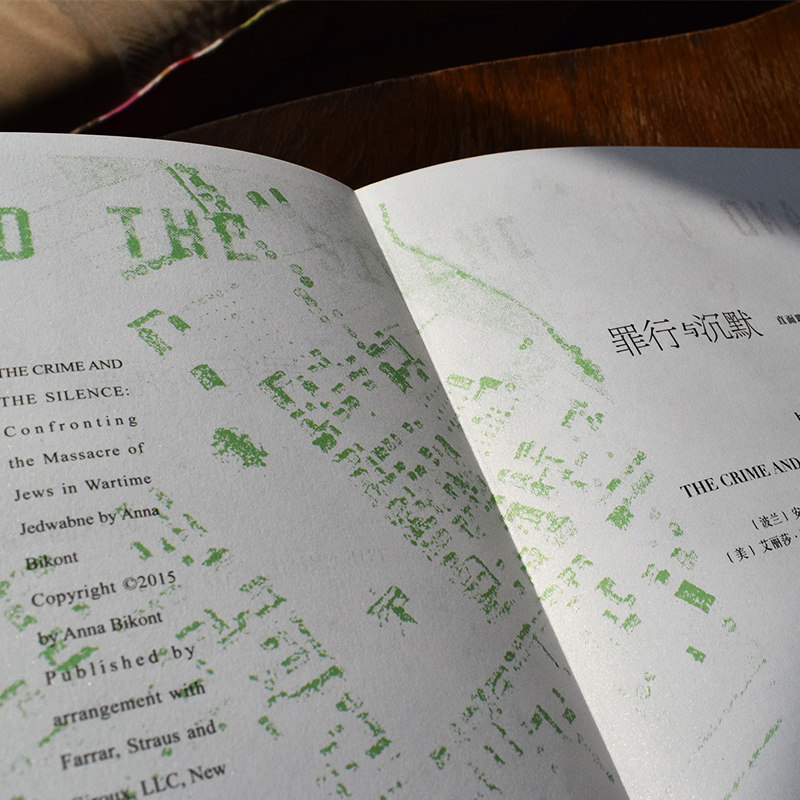 D THE
THE CRIME AND
THE SILENCE:
Confronting
the Massacre of
Jews in Wartime
Jedwabne by Anna
Bikont
Copyright ©2015
by Anna Bikont
Published by
arrangement with
Farrar, Straus and
Giroux, LLC, New
罪行与沉默 直面
THE CRIME AND
[波兰] 安
[美] 艾丽莎·